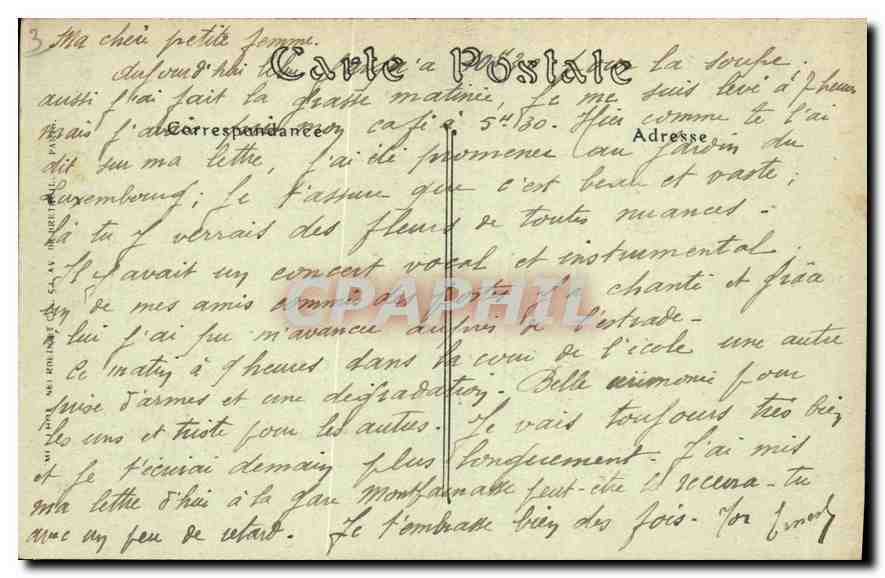 3
Ma chère petite femme.
Carte Postale
Aujourd'hui la soupe.
aussi j'ai fait la grasse matinée, Je me suis levé à 7 heures
mais j'avais mon café à 5H30. Hier comme te l'ai
Correspondance
Adresse
dit sur ma lettre, j'ai été promener au Jardin du
Luxembourg; Je t'assure que c'est beau et vaste;
là tu y verrais des fleurs de toutes nuances.
Il y avait un concert vocal et instrumental.
un de mes amis commis des postes y a chanté et grâce
CPAPHIL
lui j'ai pu m'avancer auprès de l'estrade.
Ce matin à 9 heures dans la cour de l'école une autre
prise d'armes et une dégradation. Belle cérémonie pour
les uns et triste pour les autres. Je vais toujours très bien
et je t'écrirai demain plus longuement. J'ai mis
ma lettre d'hui à la gare Montparnasse peut-être la recevra-tu
avec un peu de retard. Je t'embrasse bien des fois. Ton Ernest